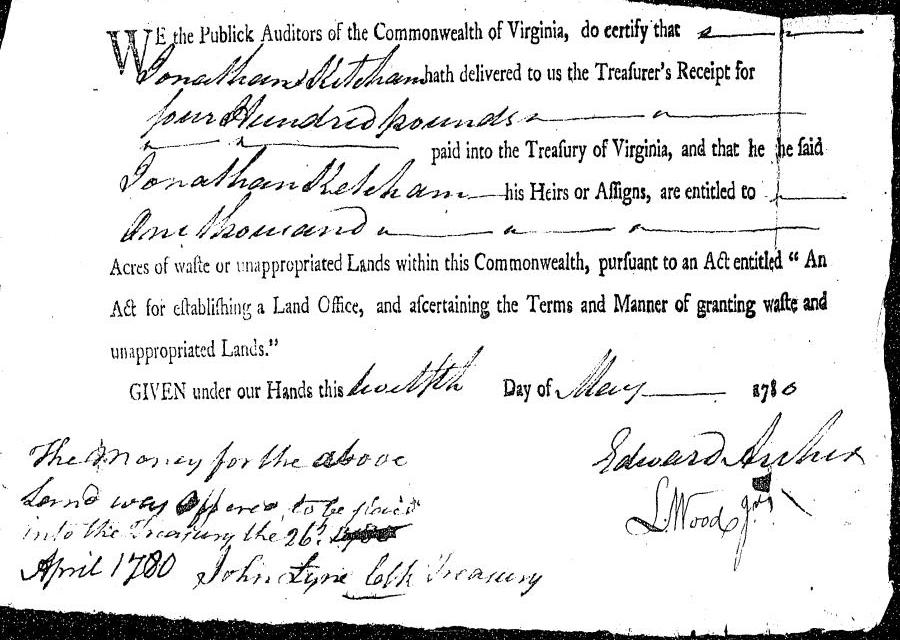 WE the Publick Auditors of the Commonwealth of Virginia, do certify that
Jonathan Ketcham hath delivered to us the Treasurer's Receipt for
four Hundred pounds
paid into the Treaſury of Virginia, and that he he ſaid
Jonathan Ketcham his Heirs or Aſſigns, are entitled to
One thousand
Acres of waſte or unappropriated Lands within this Commonwealth, purſuant to an Act entitled “ An
Act for eſtabliſhing a Land Office, and aſcertaining the Terms and Manner of granting waſte and
unappropriated Lands.”
GIVEN under our Hands this twelfth Day of May 1780
The Money for the above
Land was Offered to be paid
into the Treasury the 26th
April 1780 John Lyne Treasury
Edward Archer
L. Wood Jr